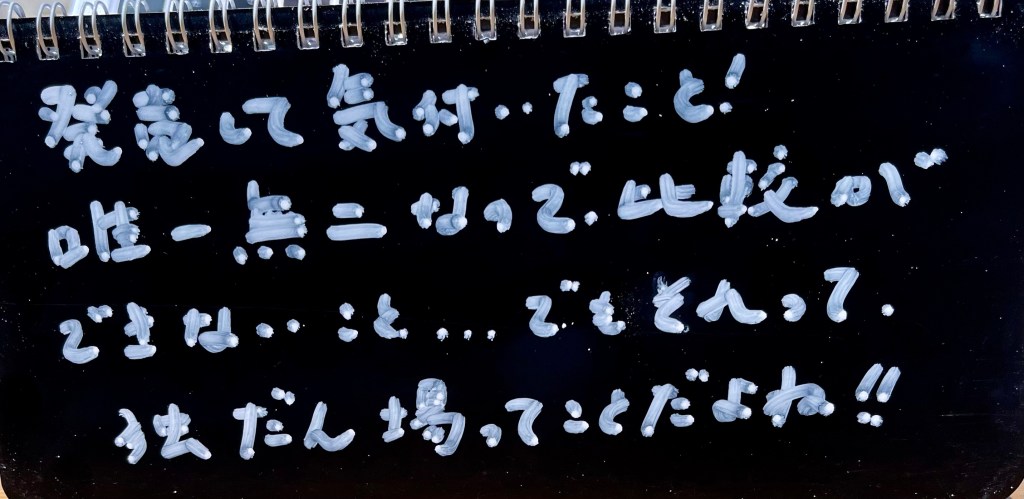 って気付いたこと!
唯一点ニなので比較が
できないこと....でもそれって.
独だん場ってことだよね!!